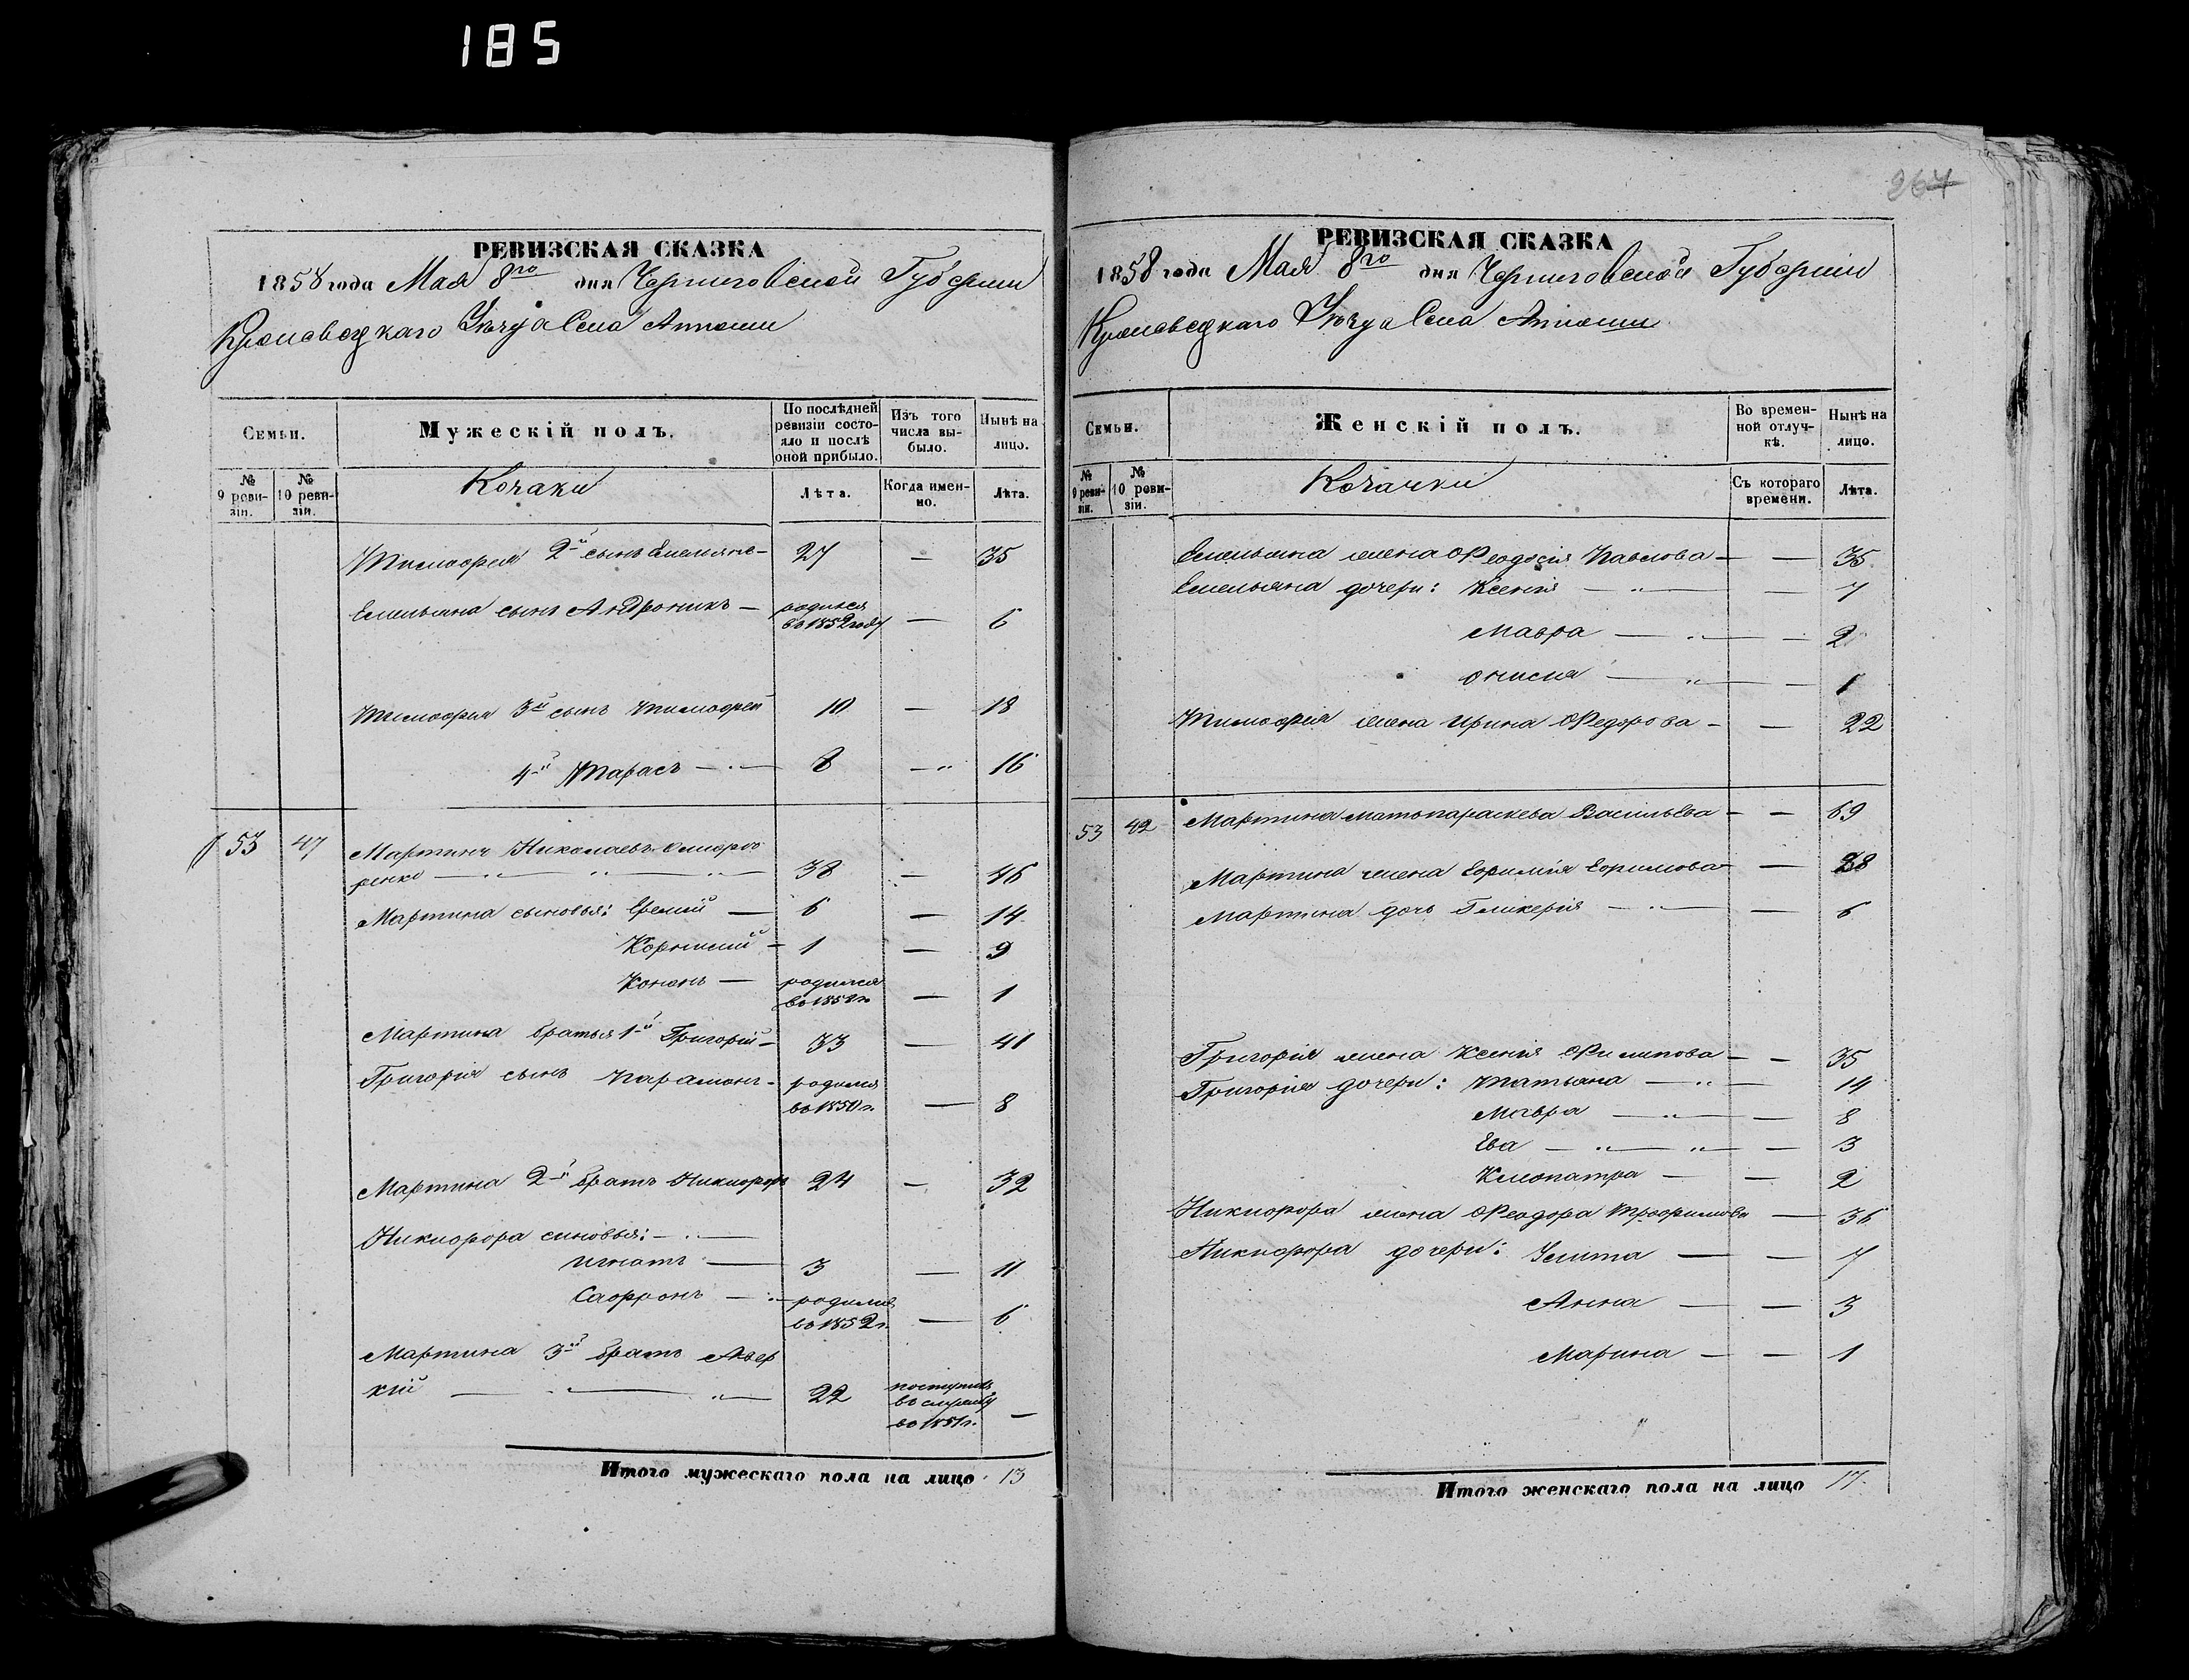 185
РЕВИЗСКАЯ СКАЗКА
1858 года Мая 8го дня Черниговской Губернии
Кролевецкаго Уезда Села
Семьи.
Мужескій полъ.
По послѣдней ревизіи состояло и послѣ оной прибыло.
Изъ того числа выбыло.
Нынѣ на лицо.
№ 9 ревизіи.
№ 10 ревизіи.
Козаки
Лѣта.
Когда именно.
Лѣта.
Тимофея 2й сынъ Емельянъ — 27 — 35
Емельяна сынъ Андроникъ — родился въ 1852 году — 6
Тимофея 3й сынъ Тимофей 10 — 18
4й Тарасъ — 8 — 16
53 47 Мартинъ Николаевъ
ренко — 38 — 46
Мартина сыновья: Еремій — 6 — 14
Корнилий — 1 — 9
Кононъ — родился — 1
Мартина братья 1й Григорій — 33 — 41
Григорія сынъ Парамонъ — родился въ 1850 г. — 8
Мартина 2й братъ Никифоръ 24 — 32
Никифора синовья: —
Игнатъ — 3 — 11
Сафронъ — родился въ 1852 г. — 6
Мартина 3й братъ Авер
кій — 22 поступилъ въ службу въ 1851 г. —
Итого мужескаго пола на лицо 13
267
РЕВИЗСКАЯ СКАЗКА
1858 года Мая 8го дня Черниговской Губерніи
Кролевецкаго Уезда Села
Семьи.
Женскій полъ.
Во временной отлучкѣ.
Нынѣ на лицо.
№ 9 ревизіи.
№ 10 ревизіи.
Козачки
Съ котораго времени.
Лѣта.
Емельяна жена Феодосія Павлова — — 35
Емельяна дочери: Ксенія — — 7
Мавра — — 2
Онисия — — 1
Тимофея жена Ирина Федорова — — 22
53 42 Мартина мать Параскева Васильева — — 69
Мартина жена Евфимія Ефимова — 38
Мартина дочь Гликерія — — 6
Григорія жена Ксенія Филипова — — 35
Григорія дочери: Татьяна — 14
Мавра — — 8
Ева — — 3
Клеопатра — — 2
Никифора жена Феодора Трофимова — 36
Никифора дочери: Улита — — 7
Анна — — 3
Марина — — 1
Итого женскаго пола на лицо 17